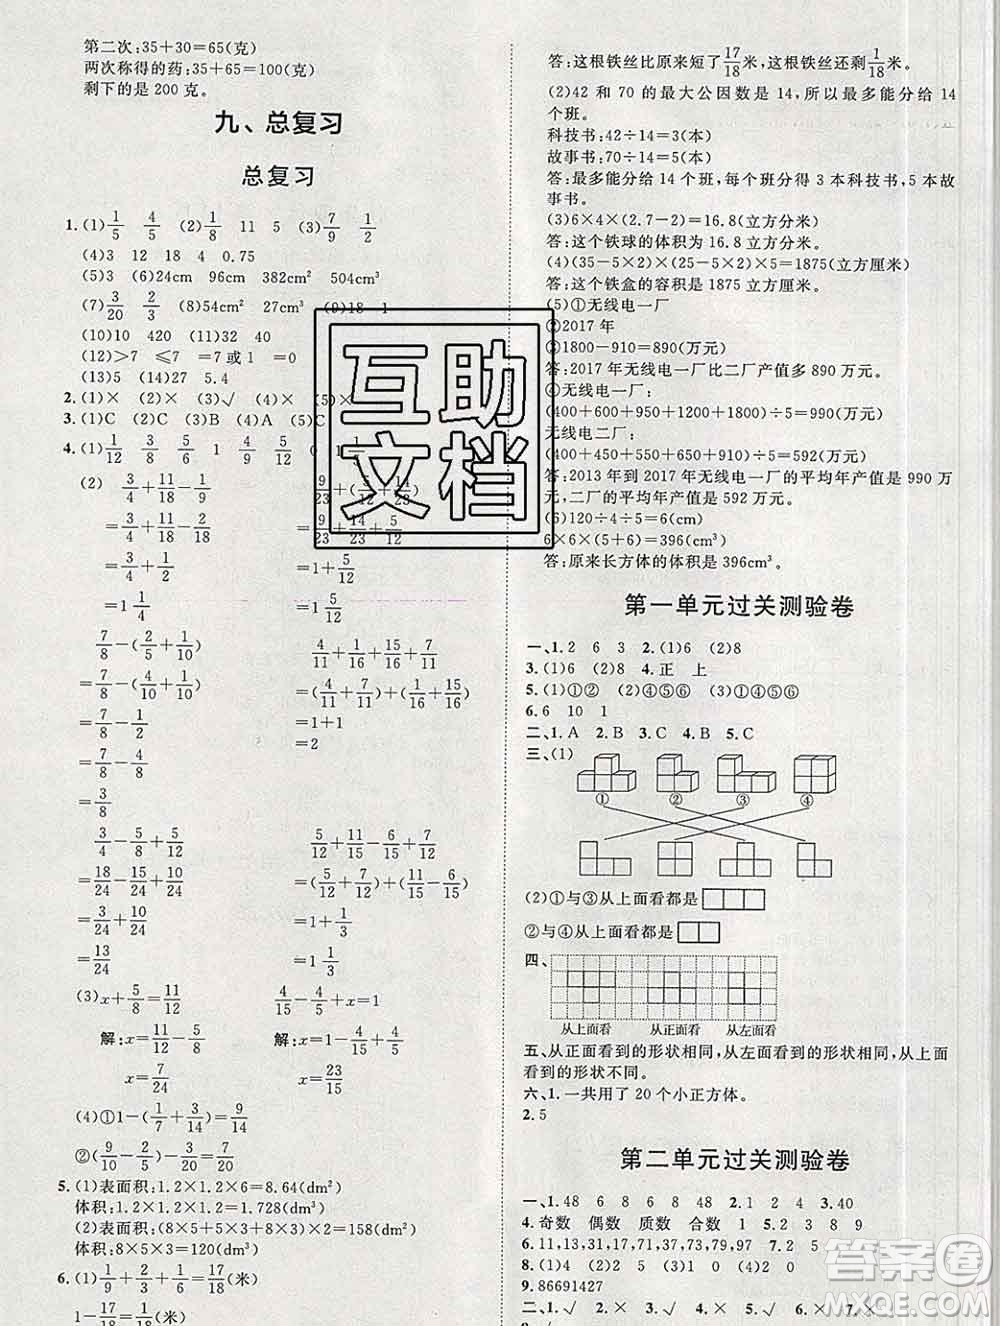 第二次:35+30=65(克)
两次称得的药:35+65=100(克)
剩下的是 200 克。
九、总复习
总复习
1.(1)1/5 4/5 (2)1/8 11 5 (3)7/9 1/4
(4)3 12 18 4 0.75
(5)3 (6)24cm 96cm 382cm² 504cm³
(7)3/20 2/3 (8)54cm² 27cm³ (9)18 1
(10)10 420 (11)32 40
(12)>7 ⩽7 =7或1 =0
(13)5 (14)27 5.4
2.(1)× (2)× (3)√ (4)× (5)×
3.(1)C (2)C (3)A (4)B (5)C
4.(1)1/12 3/8 5/6 1 4/9 5/6
(2) 3/4+11/18-1/9
=3/4+11/18-2/18
=3/4+1/2
=1 1/4
9/23+(5/12+14/23)
=9/23+14/23+5/12
=1+5/12
=1 5/12
7/8-(2/5+1/10)
=7/8-(4/10+1/10)
=7/8-1/2
=7/8-4/8
=3/8
4/11+1/16+15/16+7/11
=(4/11+7/11)+(1/16+15/16)
=1+1
=2
3/4-5/8+5/12
=18/24-15/24+10/24
=3/24+10/24
=13/24
5/12+11/15-6/15+7/12
=(5/12+7/12)+(11/15-6/15)
=1+1/3
=1 1/3
(3)x+5/8=11/12
解:x=11/12-5/8
x=7/24
4/15-4/5+x=1
解:x=1-4/15+4/5
x=23/15
(4)①1-(1/7+3/14)=9/14
②(9/10-3/20)-3/20=3/5
5.(1)表面积:1.2×1.2×6=8.64(dm²)
体积:1.2×1.2×1.2=1.728(dm³)
(2)表面积:(8×5+5×3+8×3)×2=158(dm²)
体积:8×5×3=120(dm³)
6.(1)1/9+1/2+1/3=17/18(米)
1-17/18=1/18(米)
答:这根铁丝比原来短了17/18米,这根铁丝还剩1/18米。
(2)42 和 70 的最大公因数是 14,所以最多能分给 14
个班。
科技书:42÷14=3(本)
故事书:70÷14=5(本)
答:最多能分给 14 个班,每个班分得 3 本科技书,5 本故
事书。
(3)6×4×(2.7-2)=16.8(立方分米)
答:这个铁球的体积为 16.8 立方分米。
(4)(35-5×2)×(25-5×2)×5=1875(立方厘米)
答:这个铁盒的容积是 1875 立方厘米。
(5)①无线电一厂
②2017 年
③1800-910=890(万元)
答:2017 年无线电一厂比二厂产值多 890 万元。
④无线电一厂:
(400+600+950+1200+1800)÷5=990(万元)
无线电二厂:
(400+450+550+650+910)÷5=592(万元)
答:2013 年到 2017 年无线电一厂的平均年产值是 990 万
元,二厂的平均年产值是 592 万元。
(6)120÷4÷5=6(cm)
6×6×(5+6)=396(cm³)
答:原来长方体的体积是 396cm³。
第一单元过关测验卷
一、1.2 6 3 2.(1)6 (2)8
3.(1)6 (2)8 4.正 上
5.(1)①② (2)④⑤⑥ (3)④⑤⑥
6.6 10 1
二、1.A 2.B 3.C 4.B 5.C
三、(1)
① ② ③ ④
(2)①与③从上面看都是
②与④从上面看都是
四、
从上面看 从正面看 从左面看
五、从正面看到的形状相同,从左面看到的形状相同,从上面
看到的形状不同。
六、1.一共用了 20 个小正方体。
2.5
第二单元过关测验卷
一、1.48 6 8 6 8 48 2.1 24 3.40
4.奇数 偶数 质数 合数 1 5.2 3 8 9
6.11,13,17,31,37,73,79,97 7.2 5
8.(1)4 (2)2 (3)
9.86691427
二、1.√ 2.× 3.√ 4.× 5.√ 6.× 7.×
8.√
互助
文档
答案圈
MXQE.COM